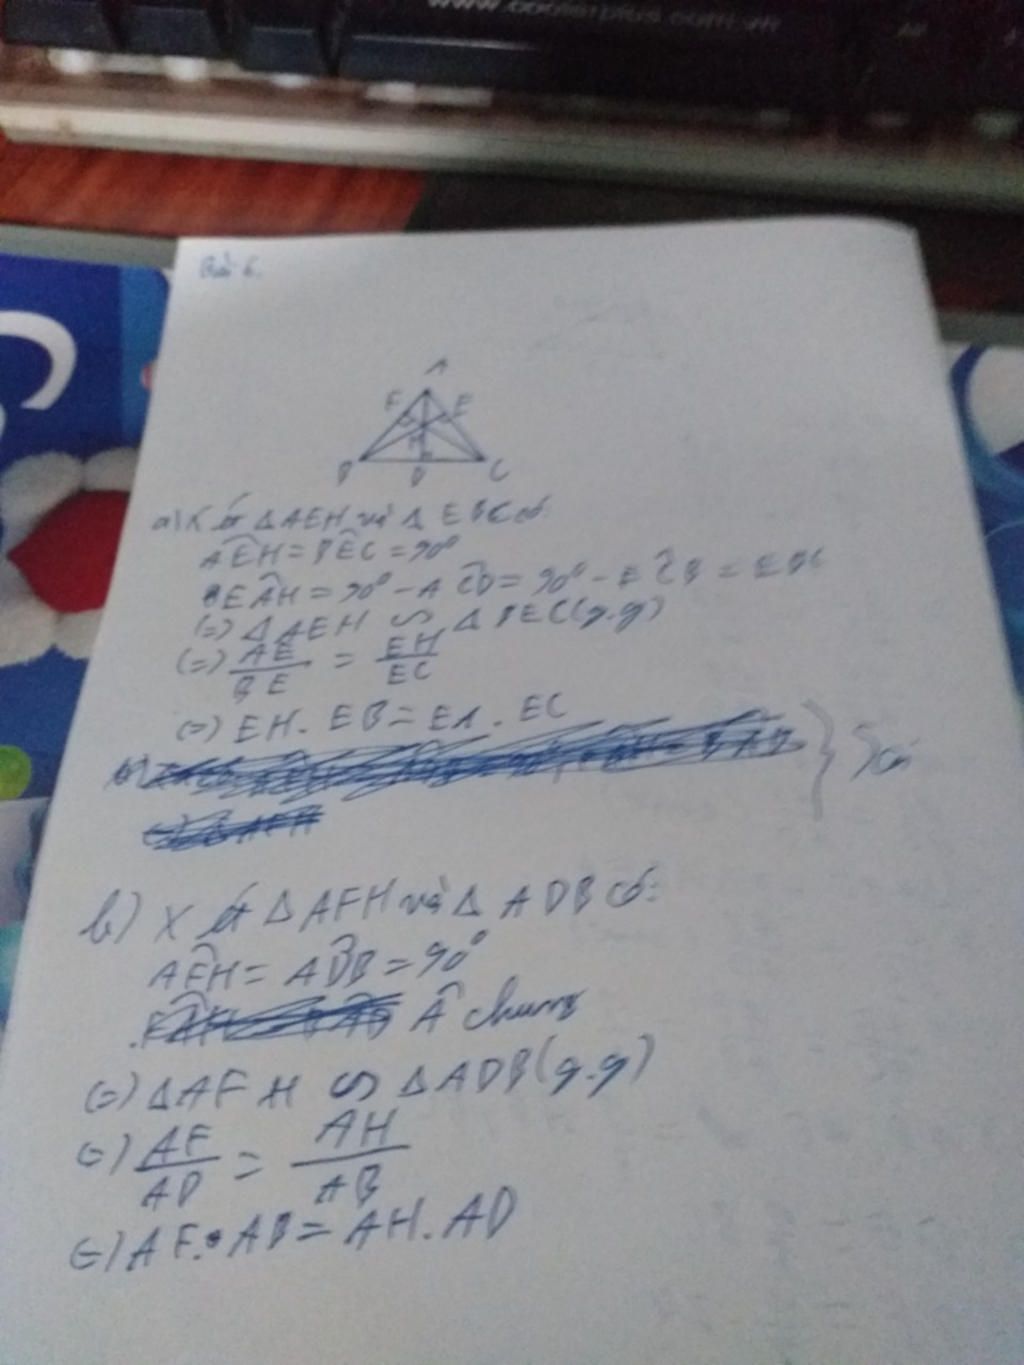 www.coolerplus.com.vn
Bài 6.
A
F E
H
B D C
a) Xét ΔAEH và Δ EBC có:
AÊH = BÊC = 90°
EÂH = 90° - AĈD = 90° - EĈB = EBC
(=) ΔAEH ∽ ΔBEC (g.g)
(=) AE/BE = EH/EC
(=) EH. EB = EA. EC
b) Xét Δ AFH và Δ ADB có:
AF̂H = AD̂B = 90°
 chung
(=) ΔAFH ∽ ΔADB (g.g)
(=) AF/AD = AH/AB
(=) AF. AB = AH. AD